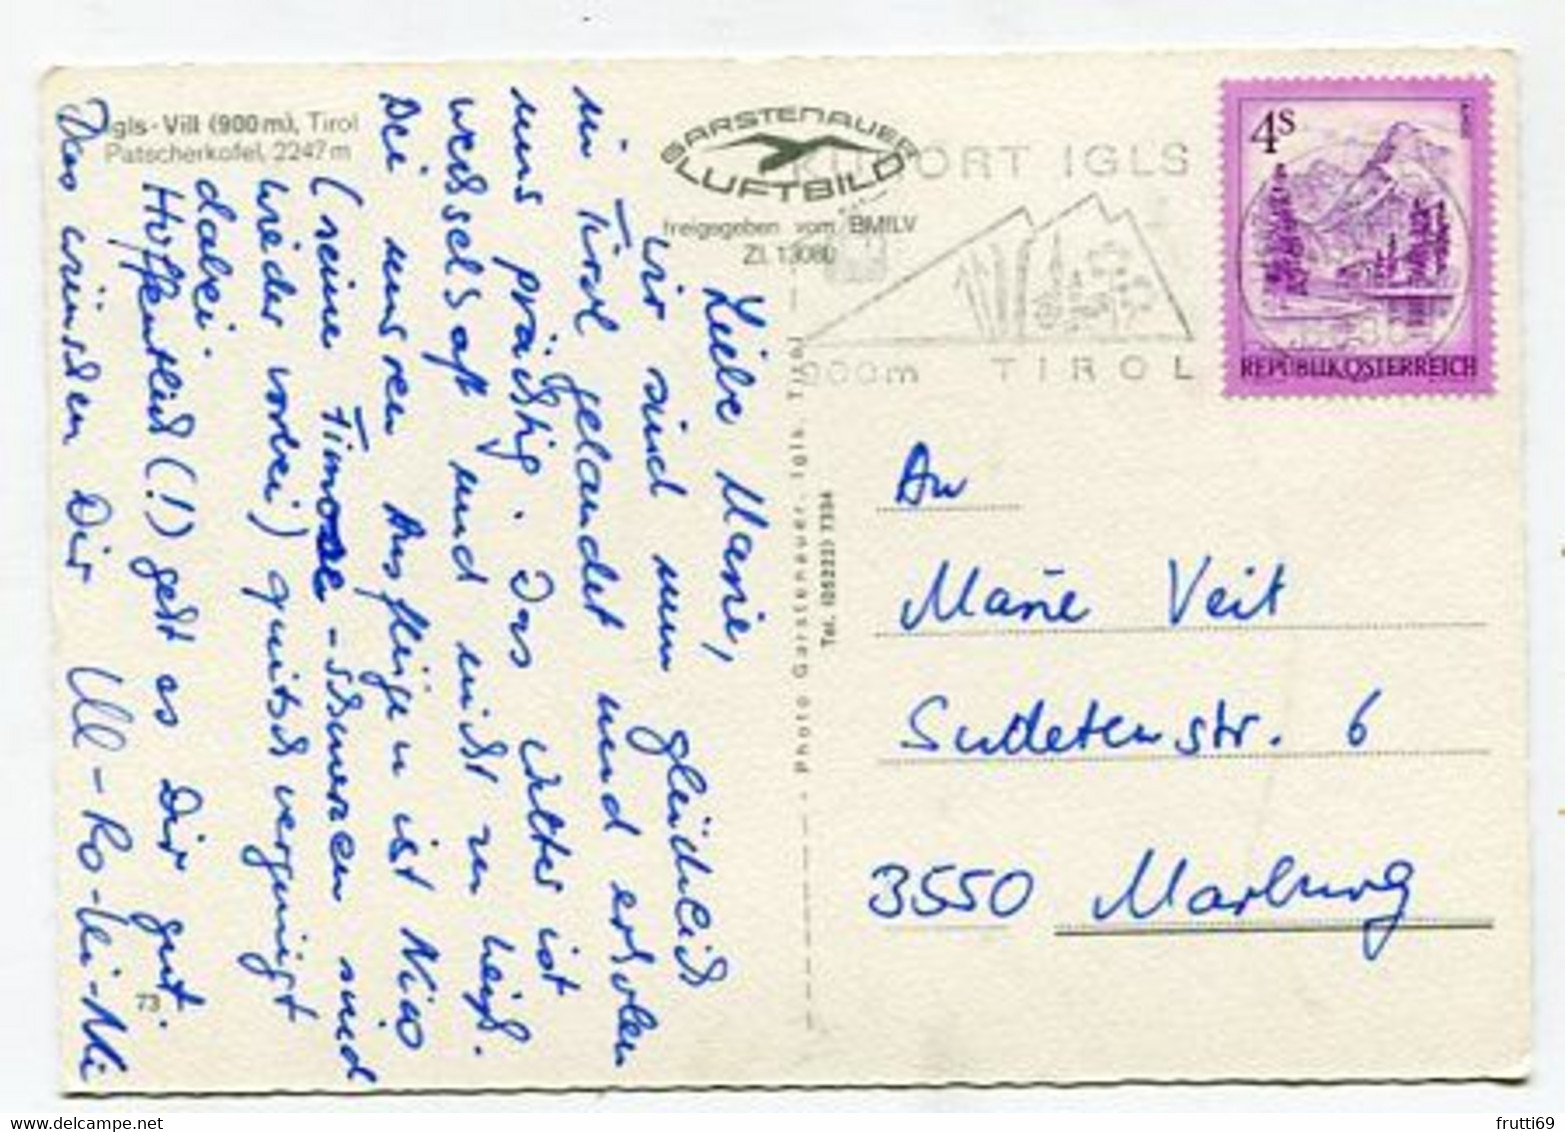 Igls-Vill (900m), Tirol
Patscherkofel, 2247 m
GARSTENAUER
LUFTBILD
freigegeben vom BMfLV
Zl. 13080
KURORT IGLS
900m TIROL
4S
REPUBLIK ÖSTERREICH
Liebe Marie,
wir sind nun glücklich
in Tirol gelandet und erholen
uns prächtig. Das Wetter ist
wechselhaft und nicht zu heiß.
Bei unseren Ausflügen ist Nico
(seine Schmerzen sind
wieder vorbei) quietschvergnügt
dabei.
Hoffentlich (!) geht es Dir gut.
Das wünschen Dir Ull-Ro-Ni-Mi
73
Photo Garstenauer, Igls, Tirol
Tel. (05222) 7334
An
Marie Veit
Sudetenstr. 6
3550 Marburg
frutti69
www.delcampe.net